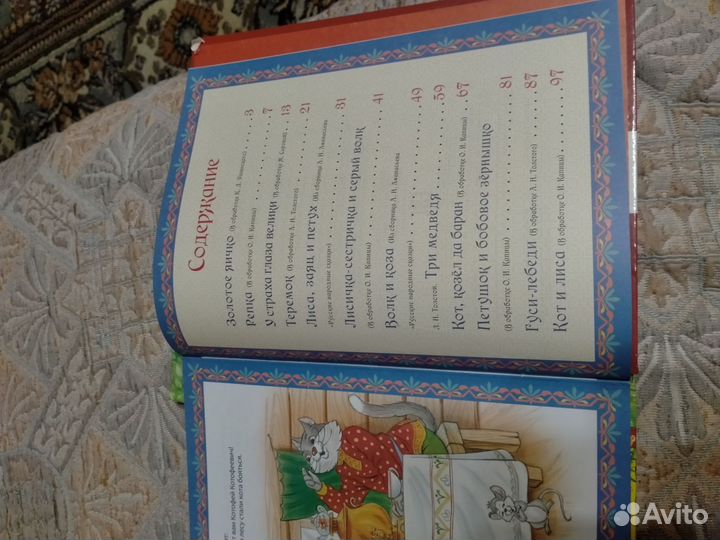 Содержание
Золотое яичко (В обработке К. Д. Ушинского) . . . . 3
Репка (В обработке О. И. Капицы) . . . . . . . . 7
У страха глаза велики (В обработке М. Серовой) . 13
Теремок (В обработке А. Н. Толстого) . . . . . . . 21
Лиса, заяц и петух (Из сборника А. Н. Афанасьева
«Русские народные сказки») . . . . . . . . . . 31
Лисичка-сестричка и серый волк
(В обработке О. И. Капицы) . . . . . . . . . . 41
Волк и коза (Из сборника А. Н. Афанасьева
«Русские народные сказки») . . . . . . . . . . 49
Л. Н. Толстой. Три медведя . . . . . . . . . 59
Кот, козёл да баран (В обработке О. И. Капицы) . 67
Петушок и бобовое зёрнышко
(В обработке О. И. Капицы) . . . . . . . . . . 81
Гуси-лебеди (В обработке А. Н. Толстого) . . . . 87
Кот и лиса (В обработке О. И. Капицы) . . . . . . 97
вам Котофей Котофеевич!
лесу стали кота бояться.
Avito